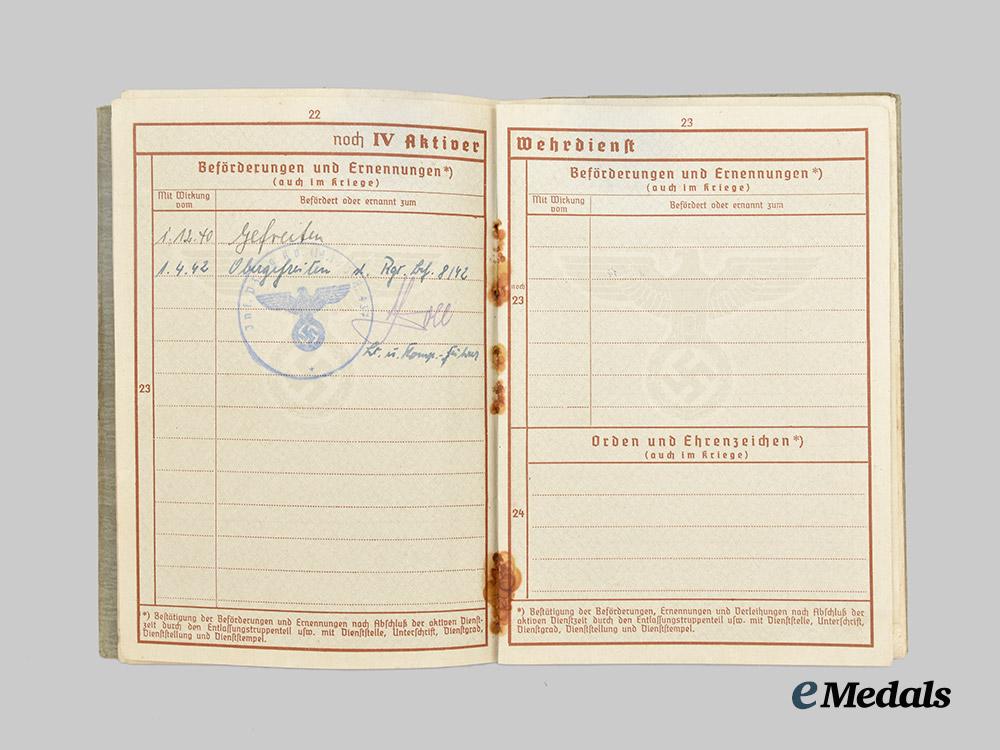 22
noch IV Aktiver
Beförderungen und Ernennungen*)
(auch im Kriege)
Mit Wirkung vom
Befördert oder ernannt zum
1.12.40 Gefreiten
1.4.42 Obergefreiten d. Rgt. Bef. 8/42
Lt. u. Komp.-Führer
23
*) Bestätigung der Beförderungen und Ernennungen nach Abschluß der aktiven Dienst-
zeit durch den Entlassungstruppenteil usw. mit Dienststelle, Unterschrift, Dienstgrad,
Dienststellung und Dienststempel.
23
Wehrdienst
Beförderungen und Ernennungen*)
(auch im Kriege)
Mit Wirkung vom
Befördert oder ernannt zum
noch
23
Orden und Ehrenzeichen*)
(auch im Kriege)
24
*) Bestätigung der Beförderungen, Ernennungen und Verleihungen nach Abschluß der
aktiven Dienstzeit durch den Entlassungstruppenteil usw. mit Dienststelle, Unterschrift,
Dienstgrad, Dienststellung und Dienststempel.
eMedals